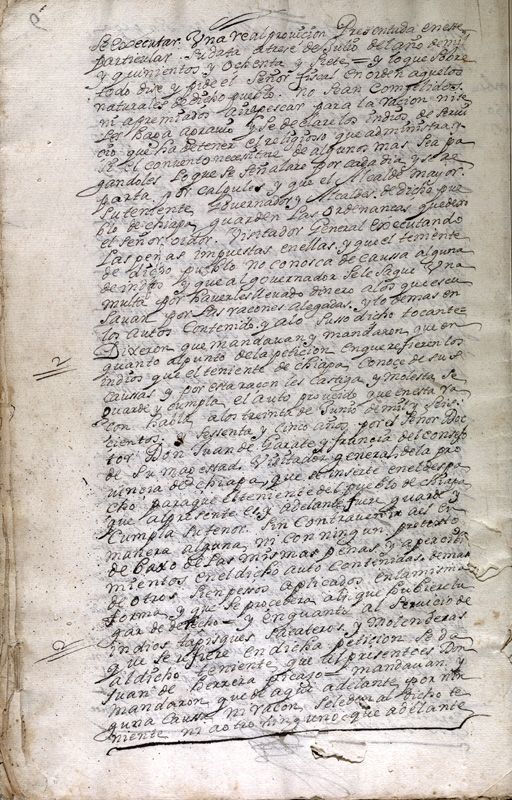 se executar. Una real provicion Presentada eneste
particular. su data atrese de Julio del año de mil
y quinientos y Ochenta y siete = y loque sobre
todo dise y pide el señor fiscal en orden aquelos
naturales de dicho pueblo. no sean compelidos
ni apremiados a yr apescar para la racion ni se
les haga agravio y se declare los indios de servi
cio que ha de tener el religioso que administra, y
si el convento necesitare de algunos mas sea pa
gandoles loque se señalare por cada dia y se re
parta por calpules y que el Alcalde mayor.
su teniente Governador y Alcaldes de dicho pue
blo de chiapa guarden las ordenancas que dexo
el señor oydor. Visitador General executando
las penas impuestas en ellas. y que el teniente
de dicho pueblo no conosca de caussa alguna
de indios y que al governador se le saque Una
multa por haverles llevado dinero alos que escu
savan por las racones alegadas. y lo demas en
los autos Contenido. y alo suso dicho tocante =
Dixeron que mandavan y mandaron que en
quanto al punto dela peticion en que refieren los
indios que el teniente de chiapa Conoce de sus
causas y por esta racon les castiga y molesta se
guarde y cumpla el auto proveido que en esta ra
con habla alos treinta de Junio de mil y seis
cientos. y sessenta y cinco años por el señor Doc
tor Don Juan de Garate y francia del consejo
de su magestad. Visitador general, dela pro
vincia de chiapa, que se inserte en el despa
cho para que el teniente del pueblo de chiapa
que al presente es y adelante fuere guarde y
cumpla su tenor. sin Contravenir a el en
manera alguna ni con ningun pretexto
de baxo de las mismas penas. y apercivi
mientos en el dicho auto contenidas. demas
de otros sien pessos aplicados en la misma
forma y que se procedera alo que hubiere lu
gar de derecho = y en quanto al servicio de
indios tapisques sacateros. y Molenderas
que se refiere en dicha peticion se da
al dicho teniente que al presente es Don
Juan de Herrera = mandavan y
mandaron que de aqui adelante por nin
guna caussa ni racon, se le den al dicho te
niente ni a otro ninguno que adelante